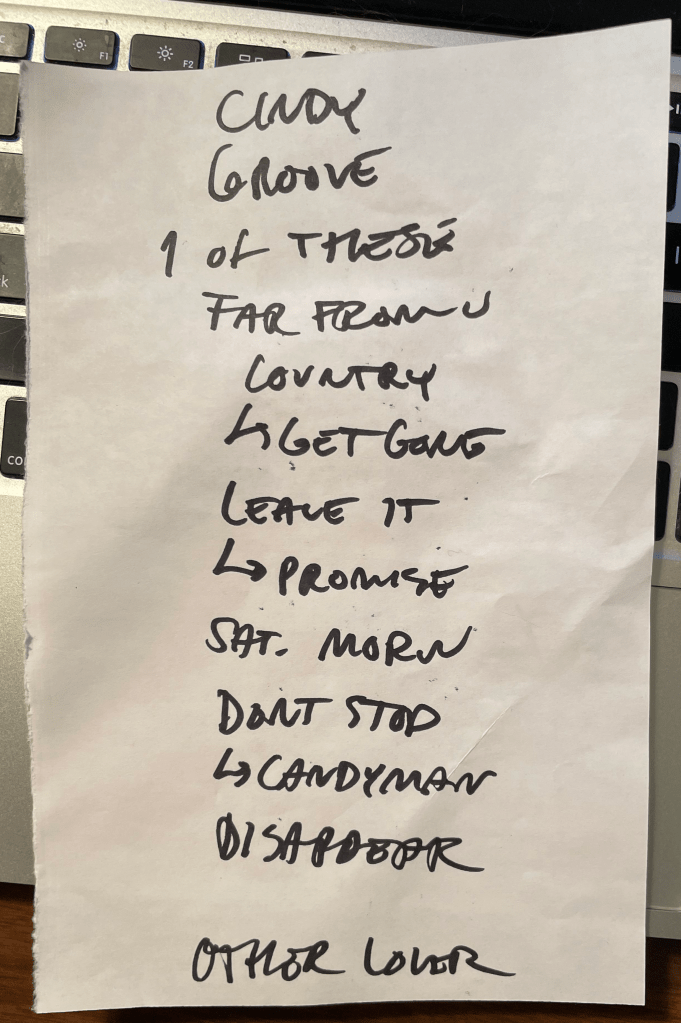 F1
F2
CINDY
GROOVE
1 of THESE
FAR FROM U
COUNTRY
↳GET GONE
LEAVE IT
↳PROMISE
SAT. MORN
DONT STOP
↳CANDYMAN
DISAPPEAR
OTHER LOVER